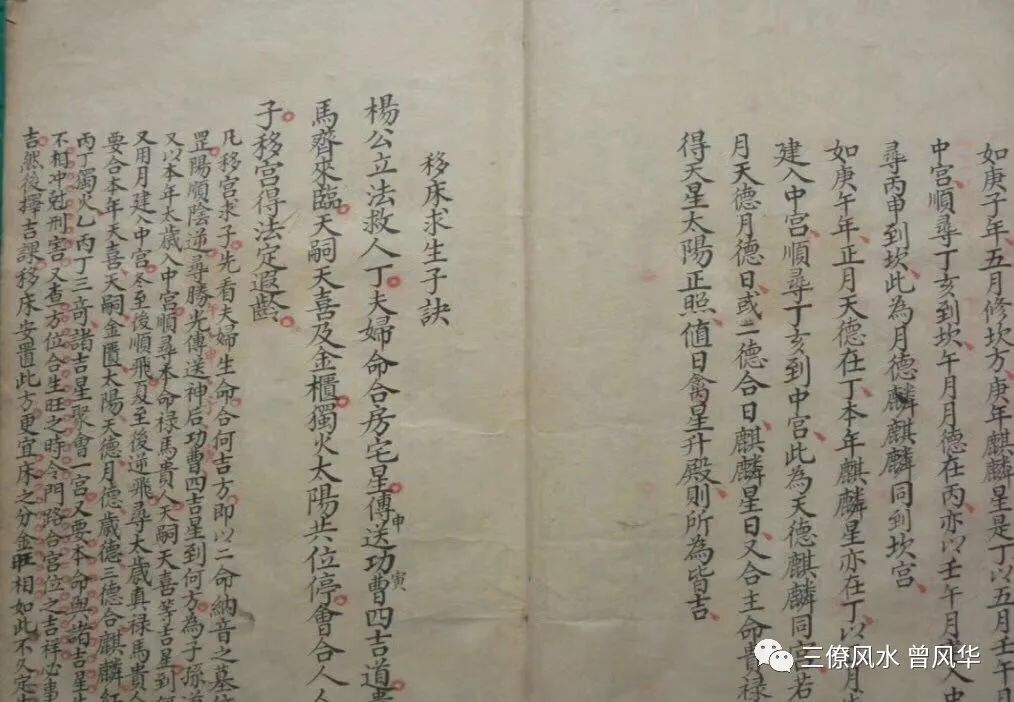 如庚子年五月修坎方庚年麒麟星是丁以五月壬午月
中宮順尋丁亥到坎午月月德在丙亦以壬午月建入中
尋丙申到坎此為月德麒麟同到坎宮
如庚午年正月天德在丁本年麒麟星亦在丁以月
建入中宮順尋丁亥到中宮此為天德麒麟同宮若
月天德月德日或二德合日麒麟星日又合主命貴祿
得天星太陽正照值日禽星升殿則所為皆吉
移床求生子訣
楊公立法救人丁夫婦命合房宅星傳送申功曹寅四吉道
馬齊來臨天嗣天喜及金櫃獨火太陽共位停會合人
子移宮得法定遐齡
凡移宮求子先看夫婦生命合何吉方即以二命納音之墓
罡陽順陰逆尋勝光傳送神后功曹四吉星到何方為子孫
又以本年太歲入中宮順尋本命祿馬貴人天嗣天喜等吉星到
又用月建入中宮冬至後順飛夏至後逆飛尋太歲真祿馬貴人
要合本年天喜天嗣金匱太陽天德月德歲德三德合麒麟紅
丙丁獨火乙丙丁三奇諸吉星聚會一宮又要本命與諸吉星
不相冲尅刑害又查方位合生旺之時令門路合宮位之吉祥必事
吉然後擇吉課移床安置此方更宜床之分金旺相如此不久定
三僚风水 曾风华